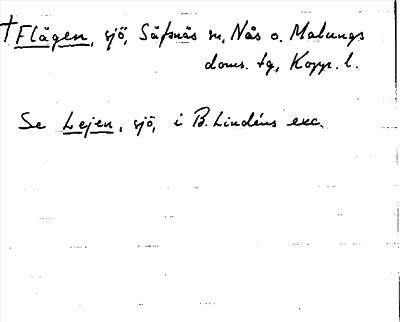 †Flägen, sjö, Säfsnäs sn, Nås o. Malungs
doms. tg, Kopp. l.
Se Lejen, sjö, i B. Lindéns exc.